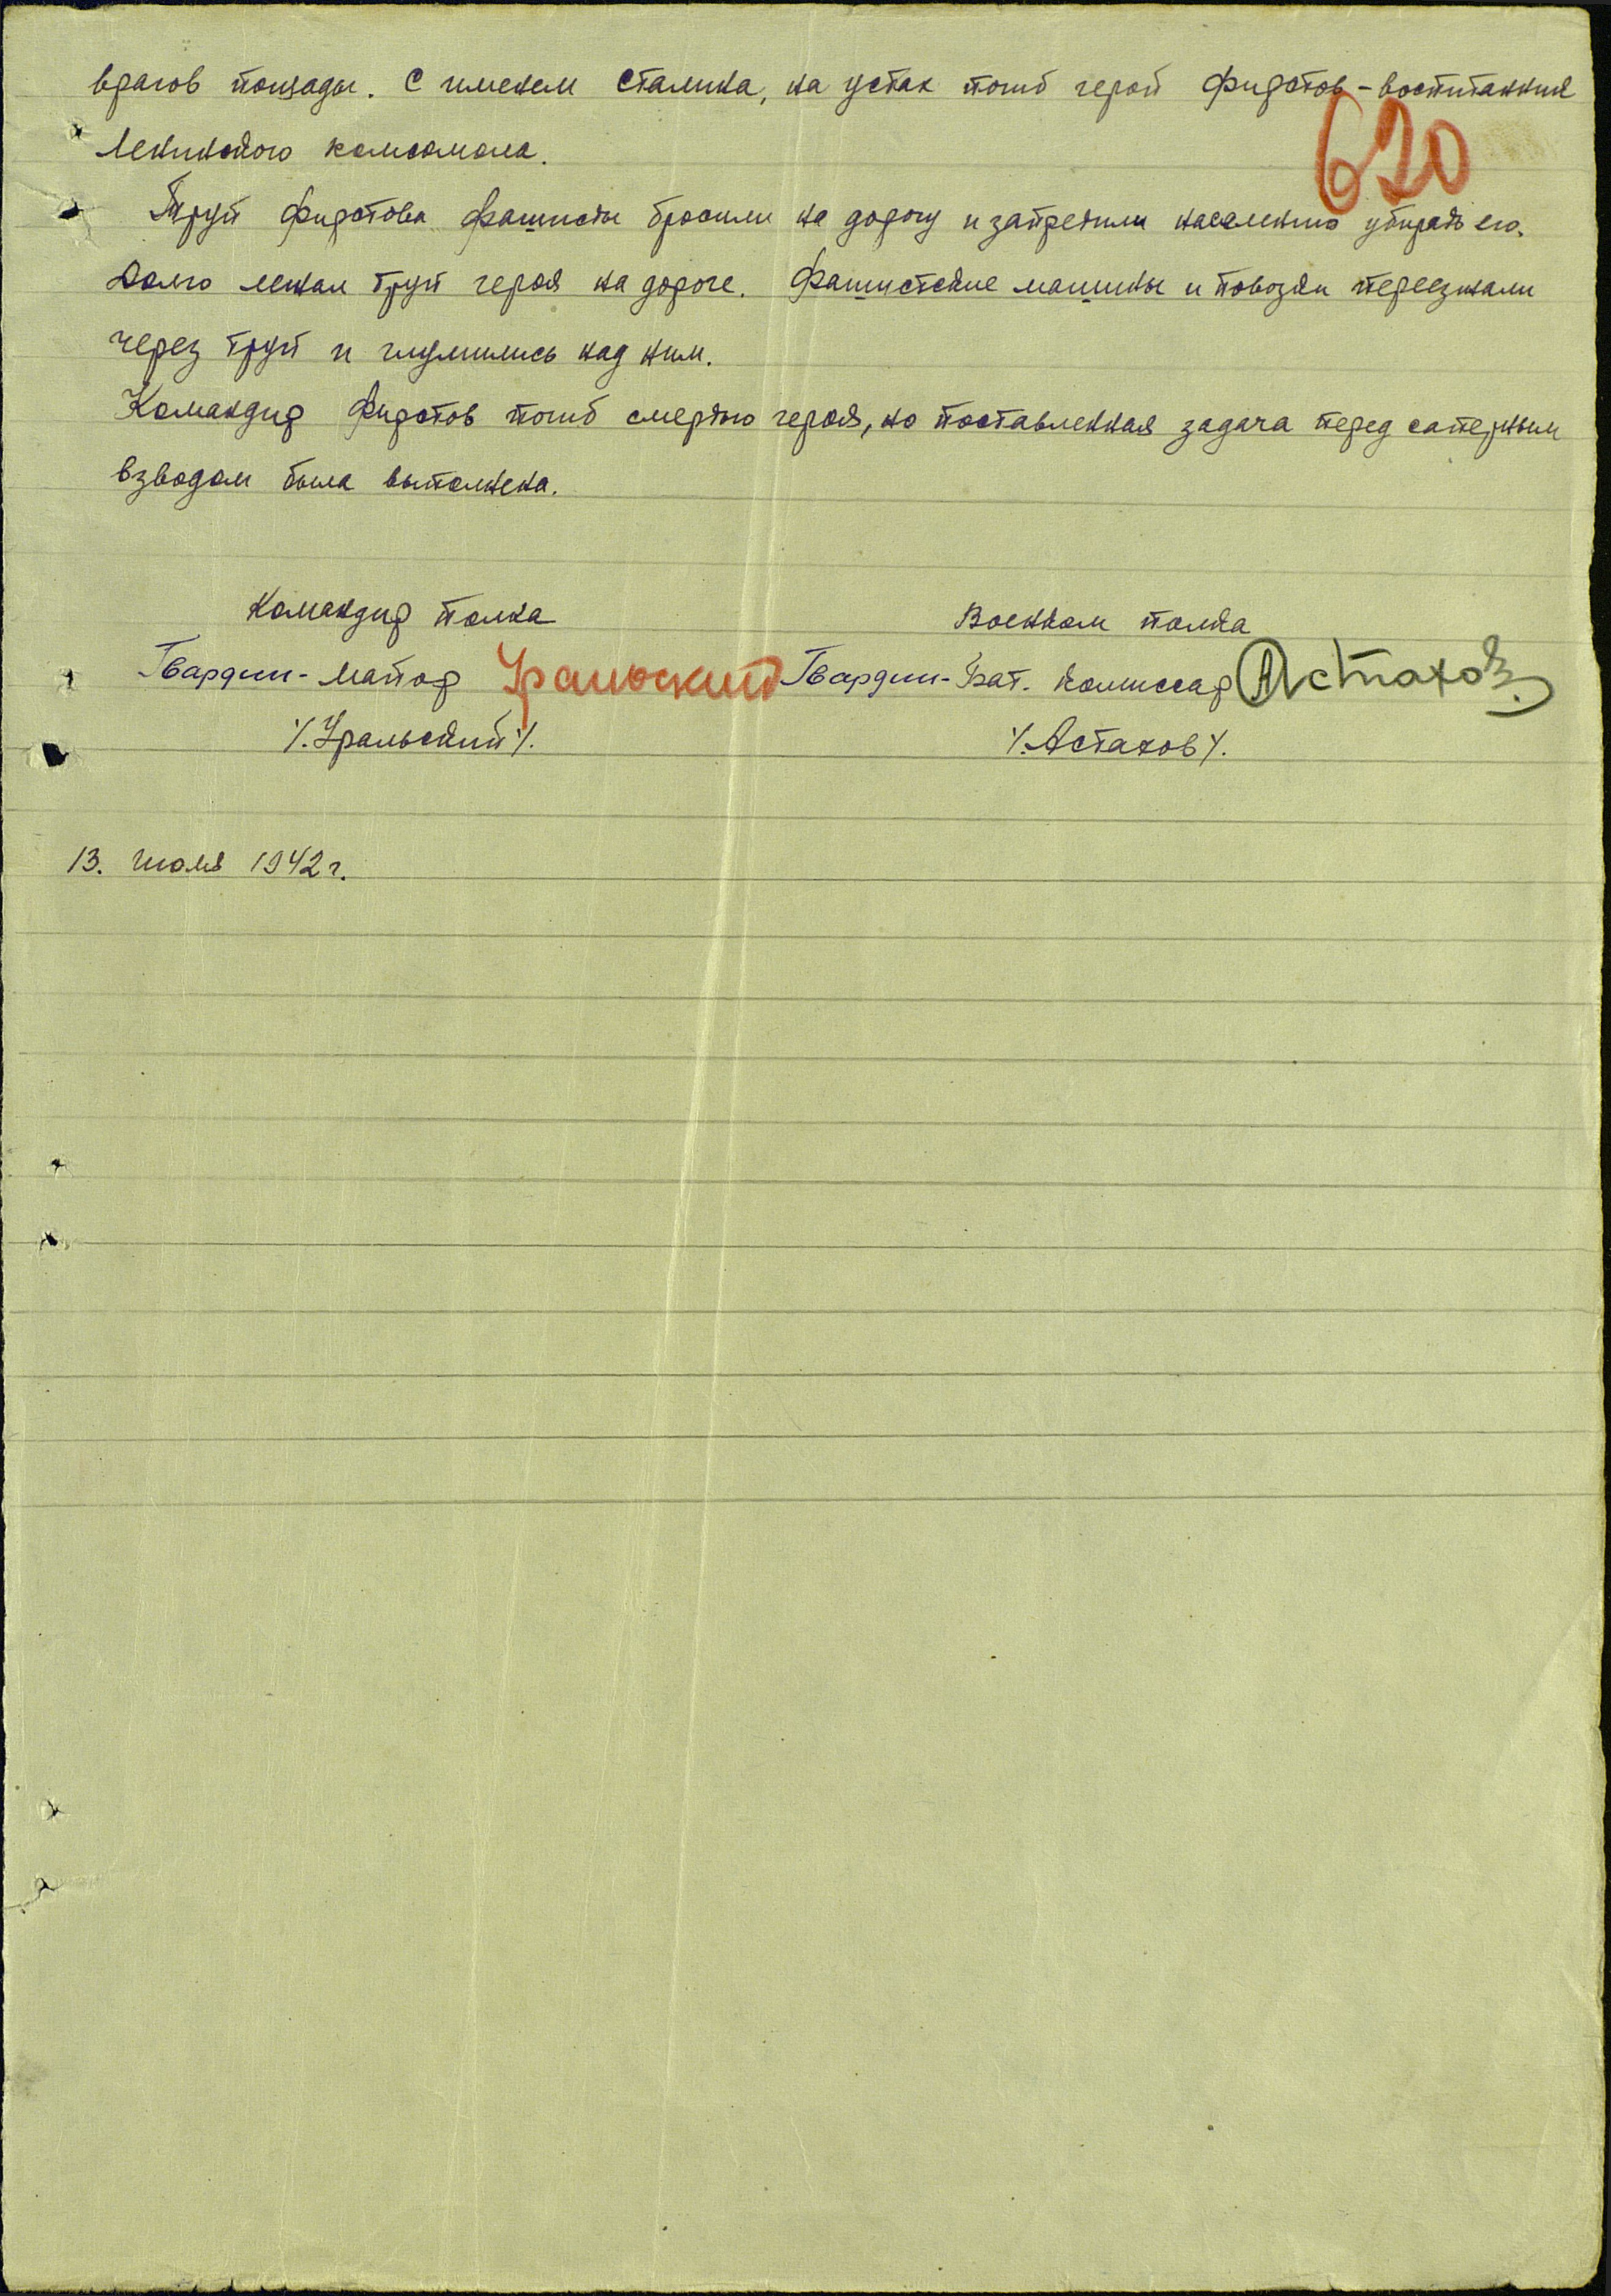 врагов пощады. С именем Сталина, на устах погиб герой Фирстов - воспитанник
620
Ленинского комсомола.
Труп Фирстова фашисты бросили на дорогу и запретили населению убирать его.
Долго лежал труп героя на дороге. Фашистские машины и повозки переезжали
через труп и глумились над ним.
Командир Фирстов погиб смертью героя, но поставленная задача перед саперным
взводом была выполнена.
Командир полка
Военком полка
Гвардии-майор Уральский
Гвардии-Бат. Комиссар Астахов
/.Уральский/.
/.Астахов/.
13. июля 1942 г.